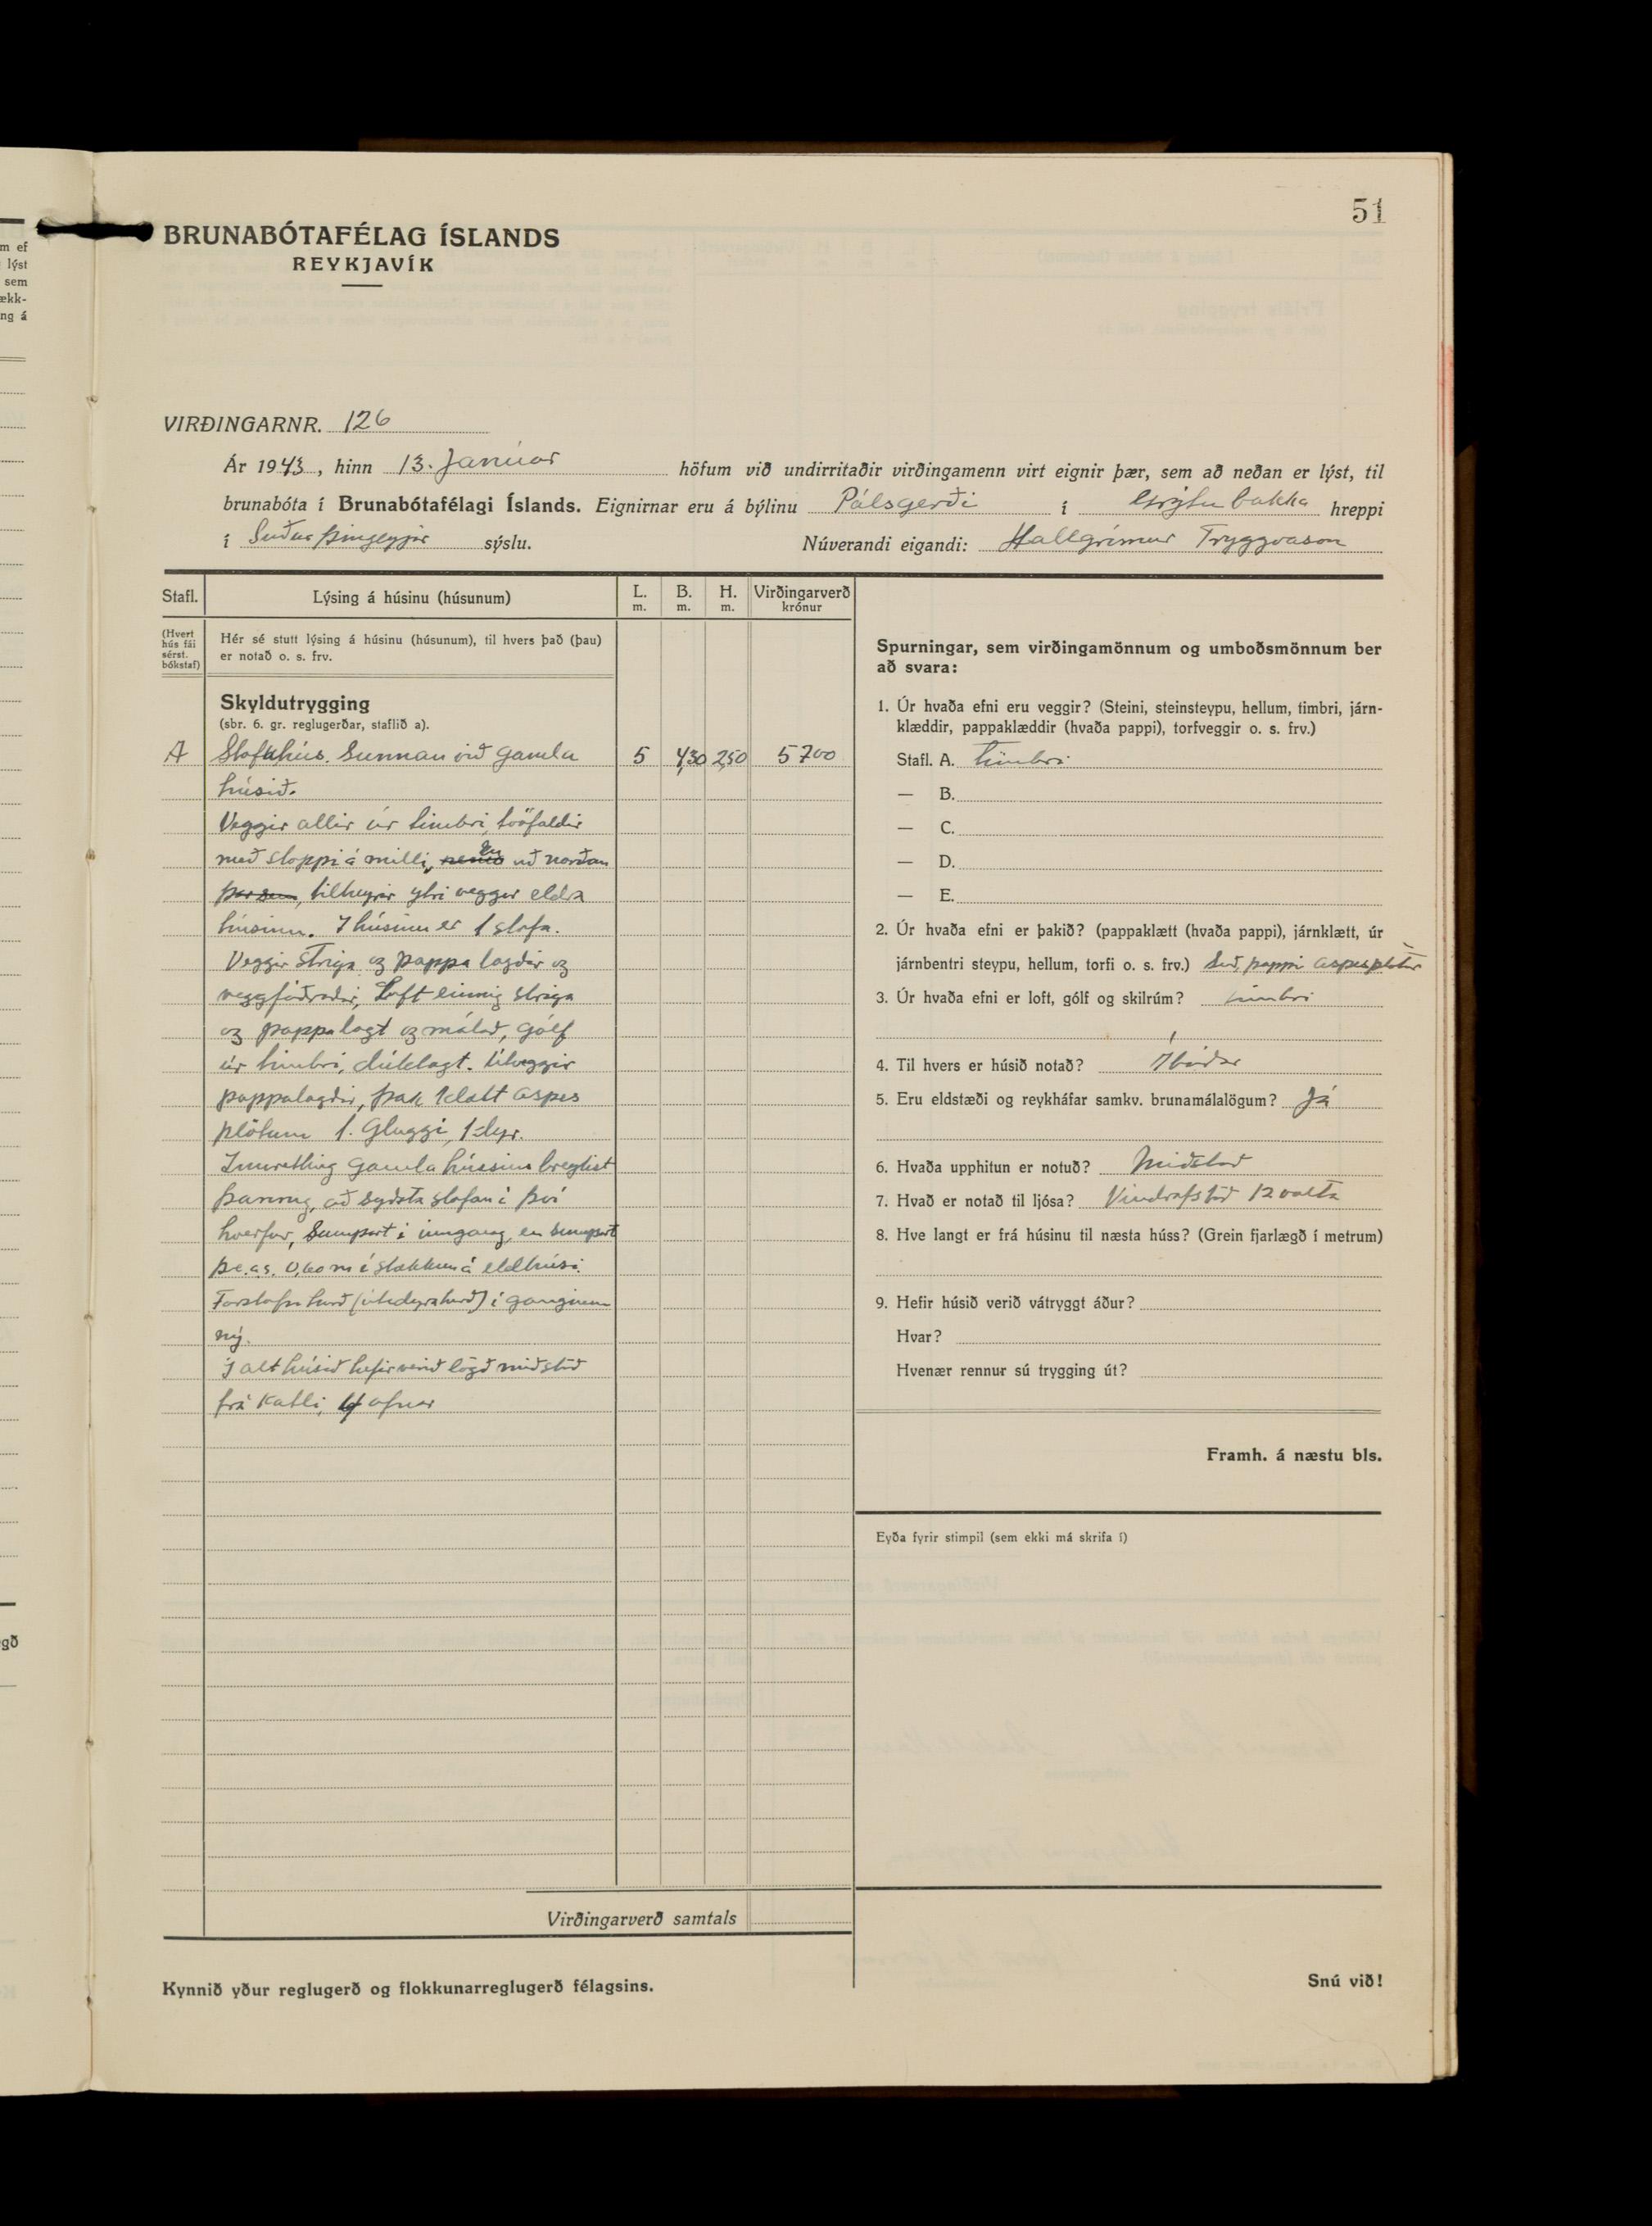 51
BRUNABÓTAFÉLAG ÍSLANDS
REYKJAVÍK
VIRÐINGARNR. 126
Ár 1943, hinn 13. Janúar höfum við undirritaðir virðingamenn virt eignir þær, sem að neðan er lýst, til
brunabóta í Brunabótafélagi Íslands. Eignirnar eru á býlinu Pálsgerði í Grýtubakka hreppi
í Suður Þingeyjar sýslu. Núverandi eigandi: Hallgrímur Tryggvason
Stafl. Lýsing á húsinu (húsunum) L. m. B. m. H. m. Virðingarverð krónur
(Hvert hús fái sérst. bókstaf)
Hér sé stutt lýsing á húsinu (húsunum), til hvers það (þau)
er notað o. s. frv.
Skyldutrygging
(sbr. 6. gr. reglugerðar, staflið a).
A Stofuhús. Sunnan við gamla 5 4,30 2,50 5700
húsið.
Veggir allir úr timbri, tvöfaldir
með stoppi á milli, nema en að norðan
þar sem, tilheyrir ytri veggur eldra
húsinu. Í húsinu er 1 stofa.
Veggir striga og pappa lagðir og
veggfóðraðir, Loft einnig striga
og pappalagt og málað, Gólf
úr timbri, dúklagt. Útveggir
pappalagðir, þak klætt aspes
plötum 1. Gluggi, 1 dyr.
Innrétting gamla hússins breytist
þannig, að syðsta stofan í því
hverfur, Sumpart í inngang, en sumpart
þ.e.a.s. 0,60 m í stækkun á eldhúsi.
Forstofu hurð (útidyrahurð) í ganginum
ný.
Í alt húsið hefir verið lögð miðstöð
frá katli, 4 ofnar
Virðingarverð samtals
Kynnið yður reglugerð og flokkunarreglugerð félagsins.
Spurningar, sem virðingamönnum og umboðsmönnum ber
að svara:
1. Úr hvaða efni eru veggir? (Steini, steinsteypu, hellum, timbri, járn-
klæddir, pappaklæddir (hvaða pappi), torfveggir o. s. frv.)
Stafl. A. Timbri
— B.
— C.
— D.
— E.
2. Úr hvaða efni er þakið? (pappaklætt (hvaða pappi), járnklætt, úr
járnbentri steypu, hellum, torfi o. s. frv.) pappi aspesplötur
3. Úr hvaða efni er loft, gólf og skilrúm? timbri
4. Til hvers er húsið notað? Íbúðar
5. Eru eldstæði og reykháfar samkv. brunamálalögum? Já
6. Hvaða upphitun er notuð? Miðstöð
7. Hvað er notað til ljósa? Vindrafstöð 12 volta
8. Hve langt er frá húsinu til næsta húss? (Grein fjarlægð í metrum)
9. Hefir húsið verið vátryggt áður?
Hvar?
Hvenær rennur sú trygging út?
Framh. á næstu bls.
Eyða fyrir stimpil (sem ekki má skrifa í)
Snú við!